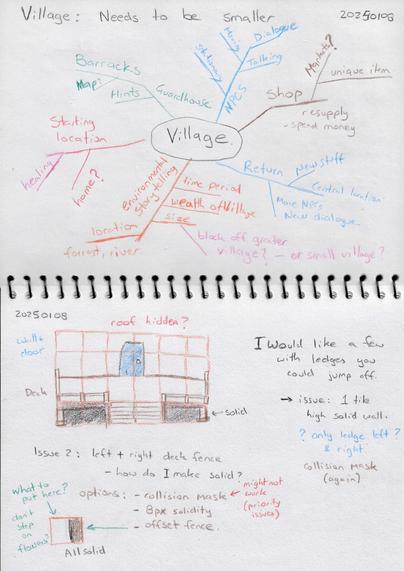 Village: Needs to be smaller
20250108
Barracks
Map:
Hints
Guardhouse
Stationary
Moving
Dialogue
Talking
NPCs
Markets?
unique item
Shop
resupply
- spend money
Starting
location
healing
home?
Village.
Return
New stuff
Central location
More NPCs
New dialogue.
environmental
story telling
time period
wealth of Village
size
location
forrest, river
block off greater
village? - or small village?
20250108
roof hidden?
wall +
door
Deck
solid
I would like a few
with ledges you
could jump off.
→ issue: 1 tile
high solid wall.
? only ledge left ?
& right
Collision Mask
(again)
Issue 2: left + right deck fence
- how do I make solid?
options: - collision mask ← might not
work
(priority
issues)
- 8px solidity
- offset fence.
What to
put here?
don't
step
on
flowers?
All solid